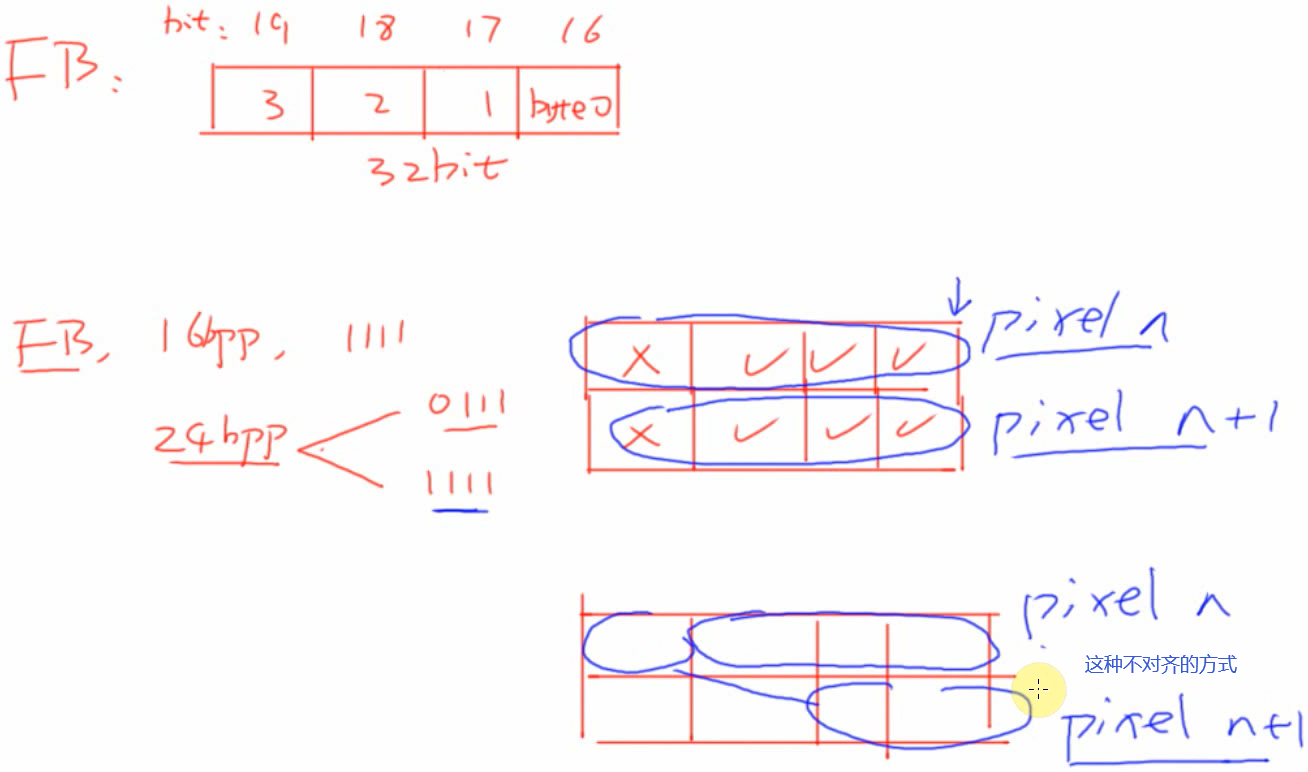 bit: 19 18 17 16
FB:
3 2 1 byte0
32bit
FB, 16bpp, 1111
24bpp
0111
1111
X ✓ ✓ ✓ pixel n
X ✓ ✓ ✓ pixel n+1
pixel n
这种不对齐的方式
pixel n+1